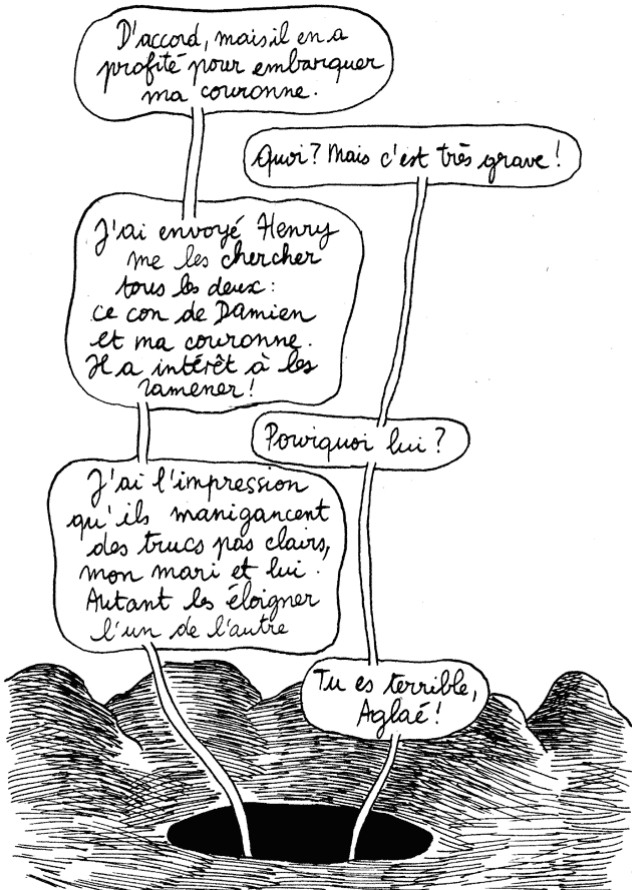 D'accord, mais il en a
profité pour embarquer
ma couronne.
Quoi? Mais c'est très grave!
J'ai envoyé Henry
me les chercher
tous les deux:
ce con de Damien
et ma couronne.
Il a intérêt à les
ramener!
Pourquoi lui?
J'ai l'impression
qu'ils manigancent
des trucs pas clairs,
mon mari et lui.
Autant les éloigner
l'un de l'autre
Tu es terrible,
Aglaé!